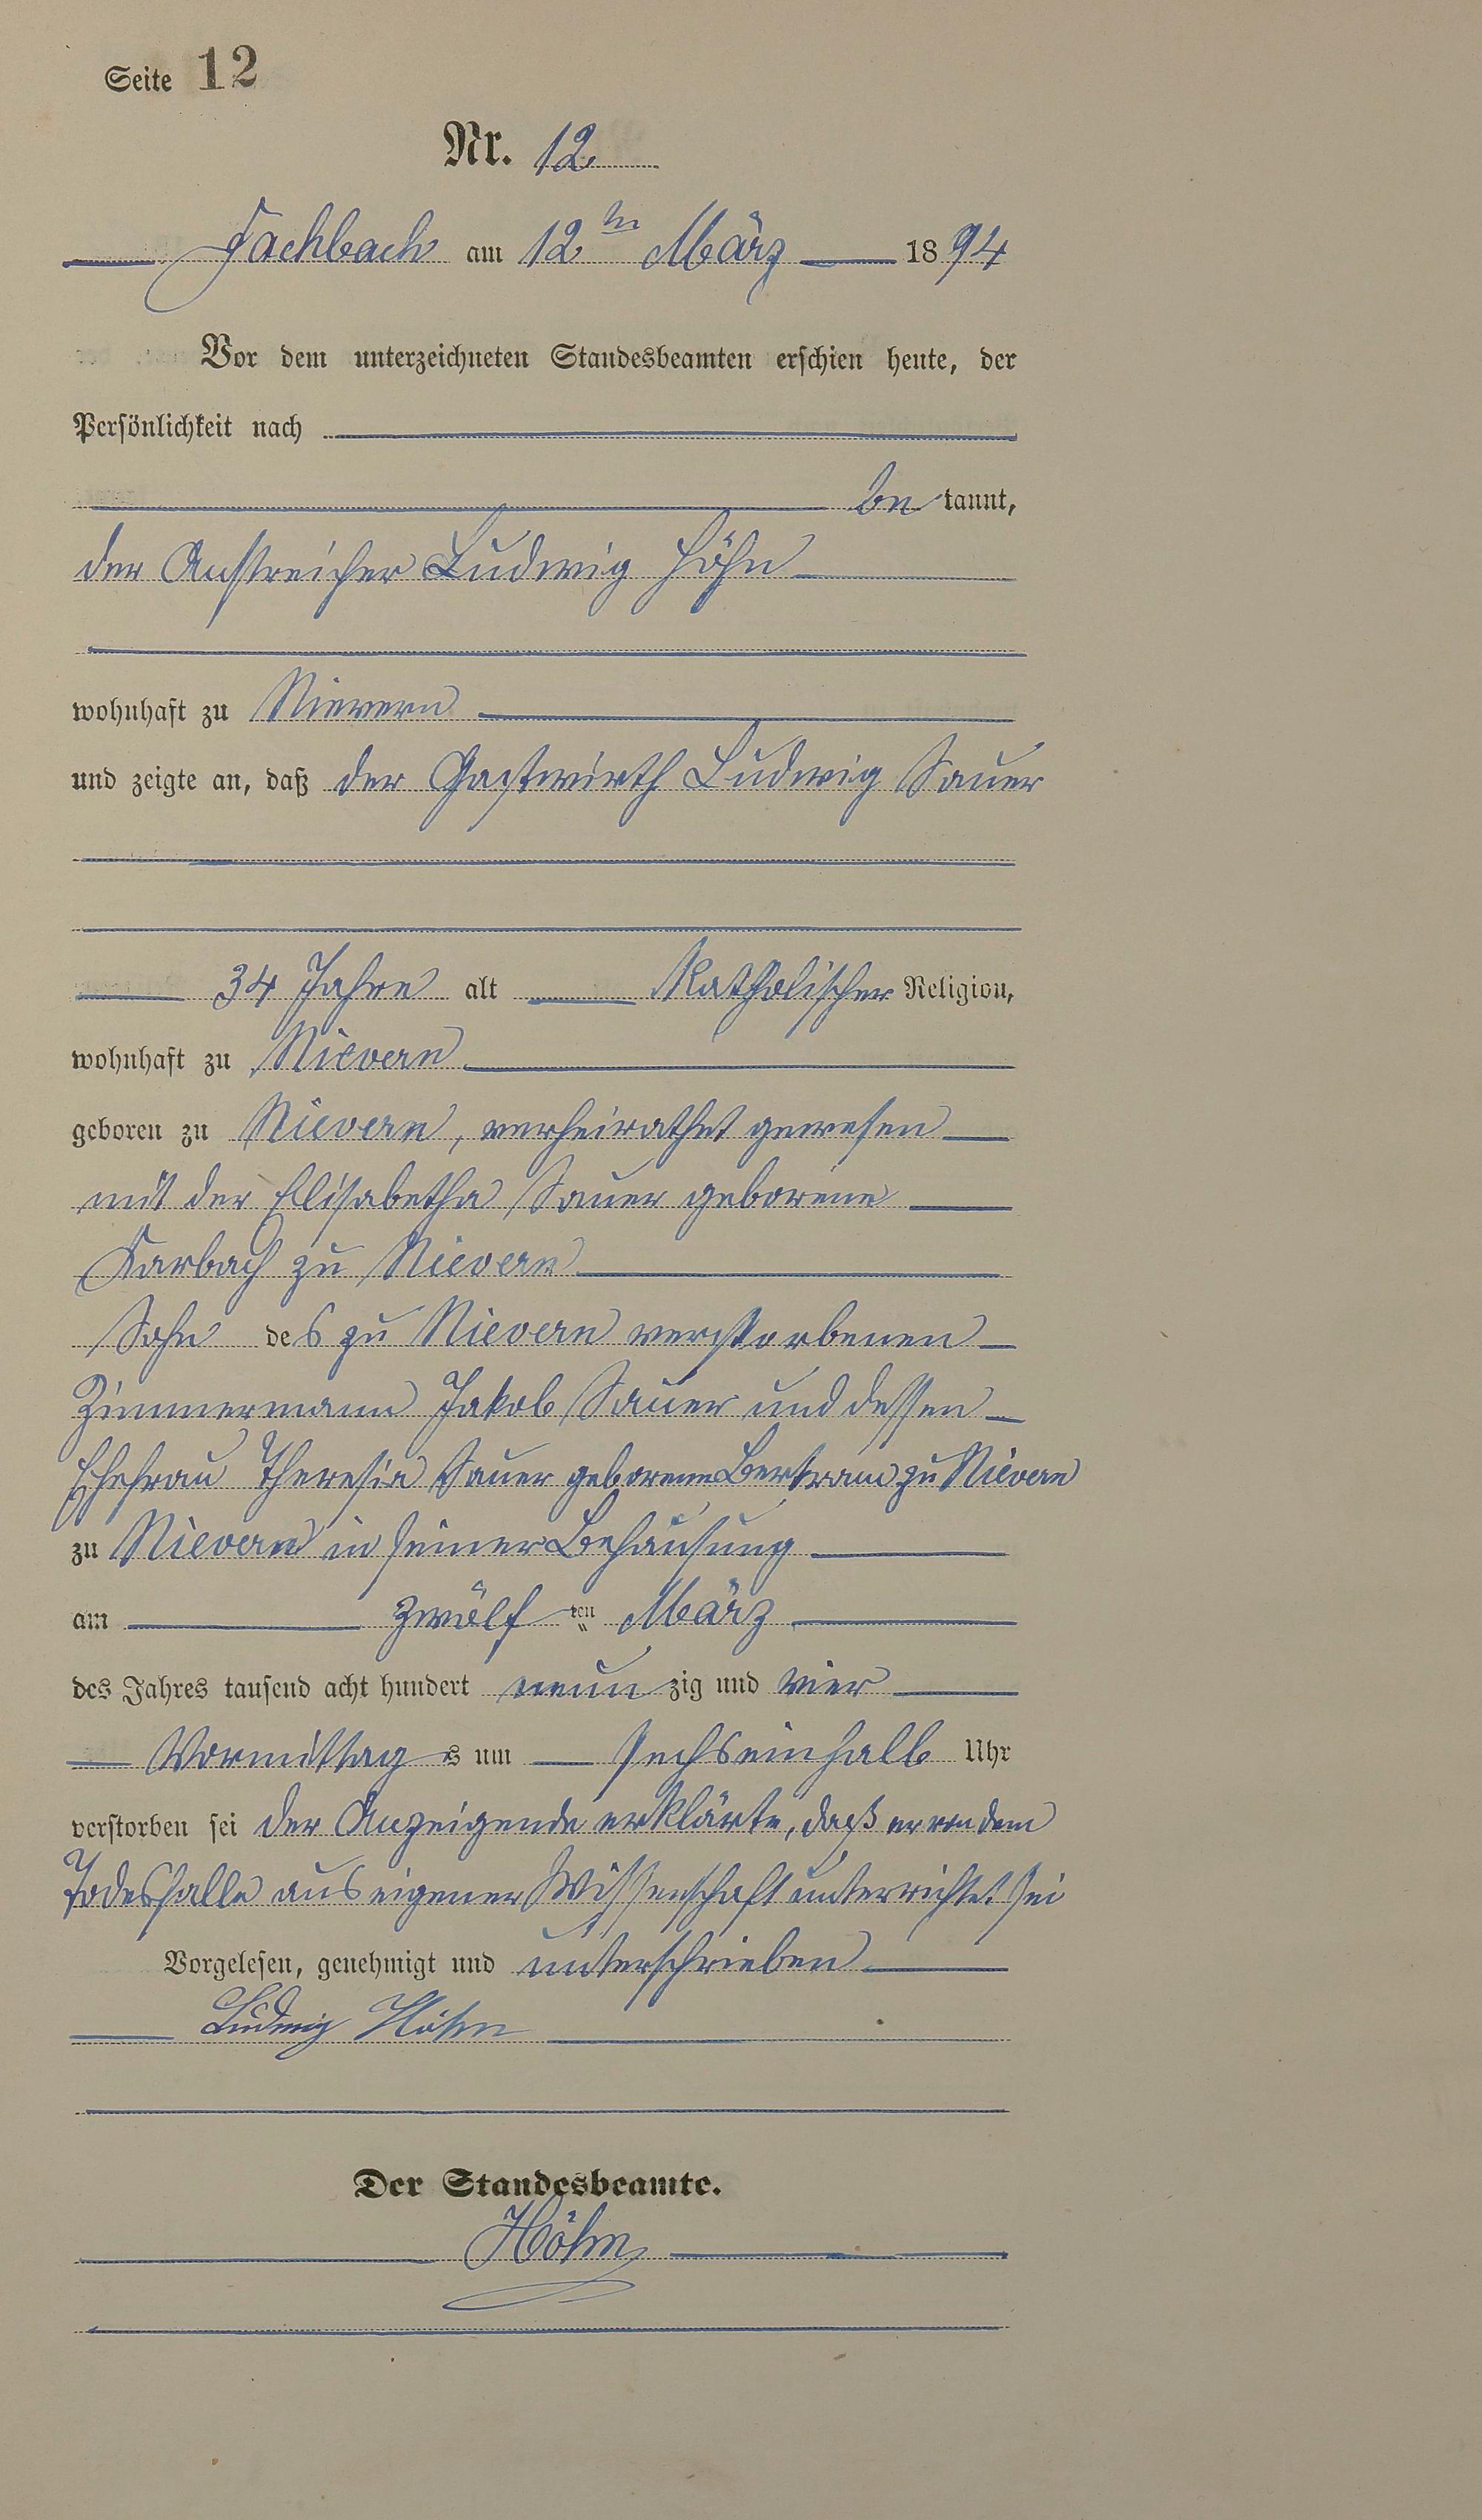 Seite 12
Nr. 12.
Fachbach am 12ten März 1894
Vor dem unterzeichneten Standesbeamten erschien heute, der
Persönlichkeit nach
be kannt,
der Anstreicher Ludwig Höhn
wohnhaft zu Nievern
und zeigte an, daß der Gastwirth Ludwig Sauer
34 Jahre alt Katholischer Religion,
wohnhaft zu Nievern
geboren zu Nievern, verheirathet gewesen
mit der Elisabetha Sauer geborene
Karbach zu Nievern
Sohn des zu Nievern verstorbenen
Zimmermann Jakob Sauer und dessen
Ehefrau Theresia Sauer geborene Bertram zu Nievern
zu Nievern in seiner Behausung
am zwölf ten März
des Jahres tausend acht hundert neun zig und vier
Vormittag s um sechseinhalb Uhr
verstorben sei der Anzeigende erklärte, daß er von dem
Todesfalle aus eigener Wissenschaft unterrichtet sei
Vorgelesen, genehmigt und unterschrieben
Ludwig Höhn
Der Standesbeamte.
Höhn